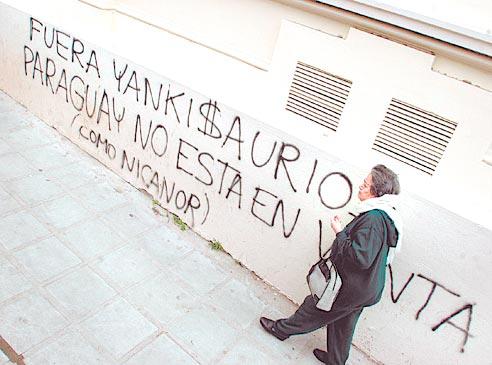 FUERA YANKI$AURIO
PARAGUAY NO ESTA EN VENTA
(COMO NICANOR)